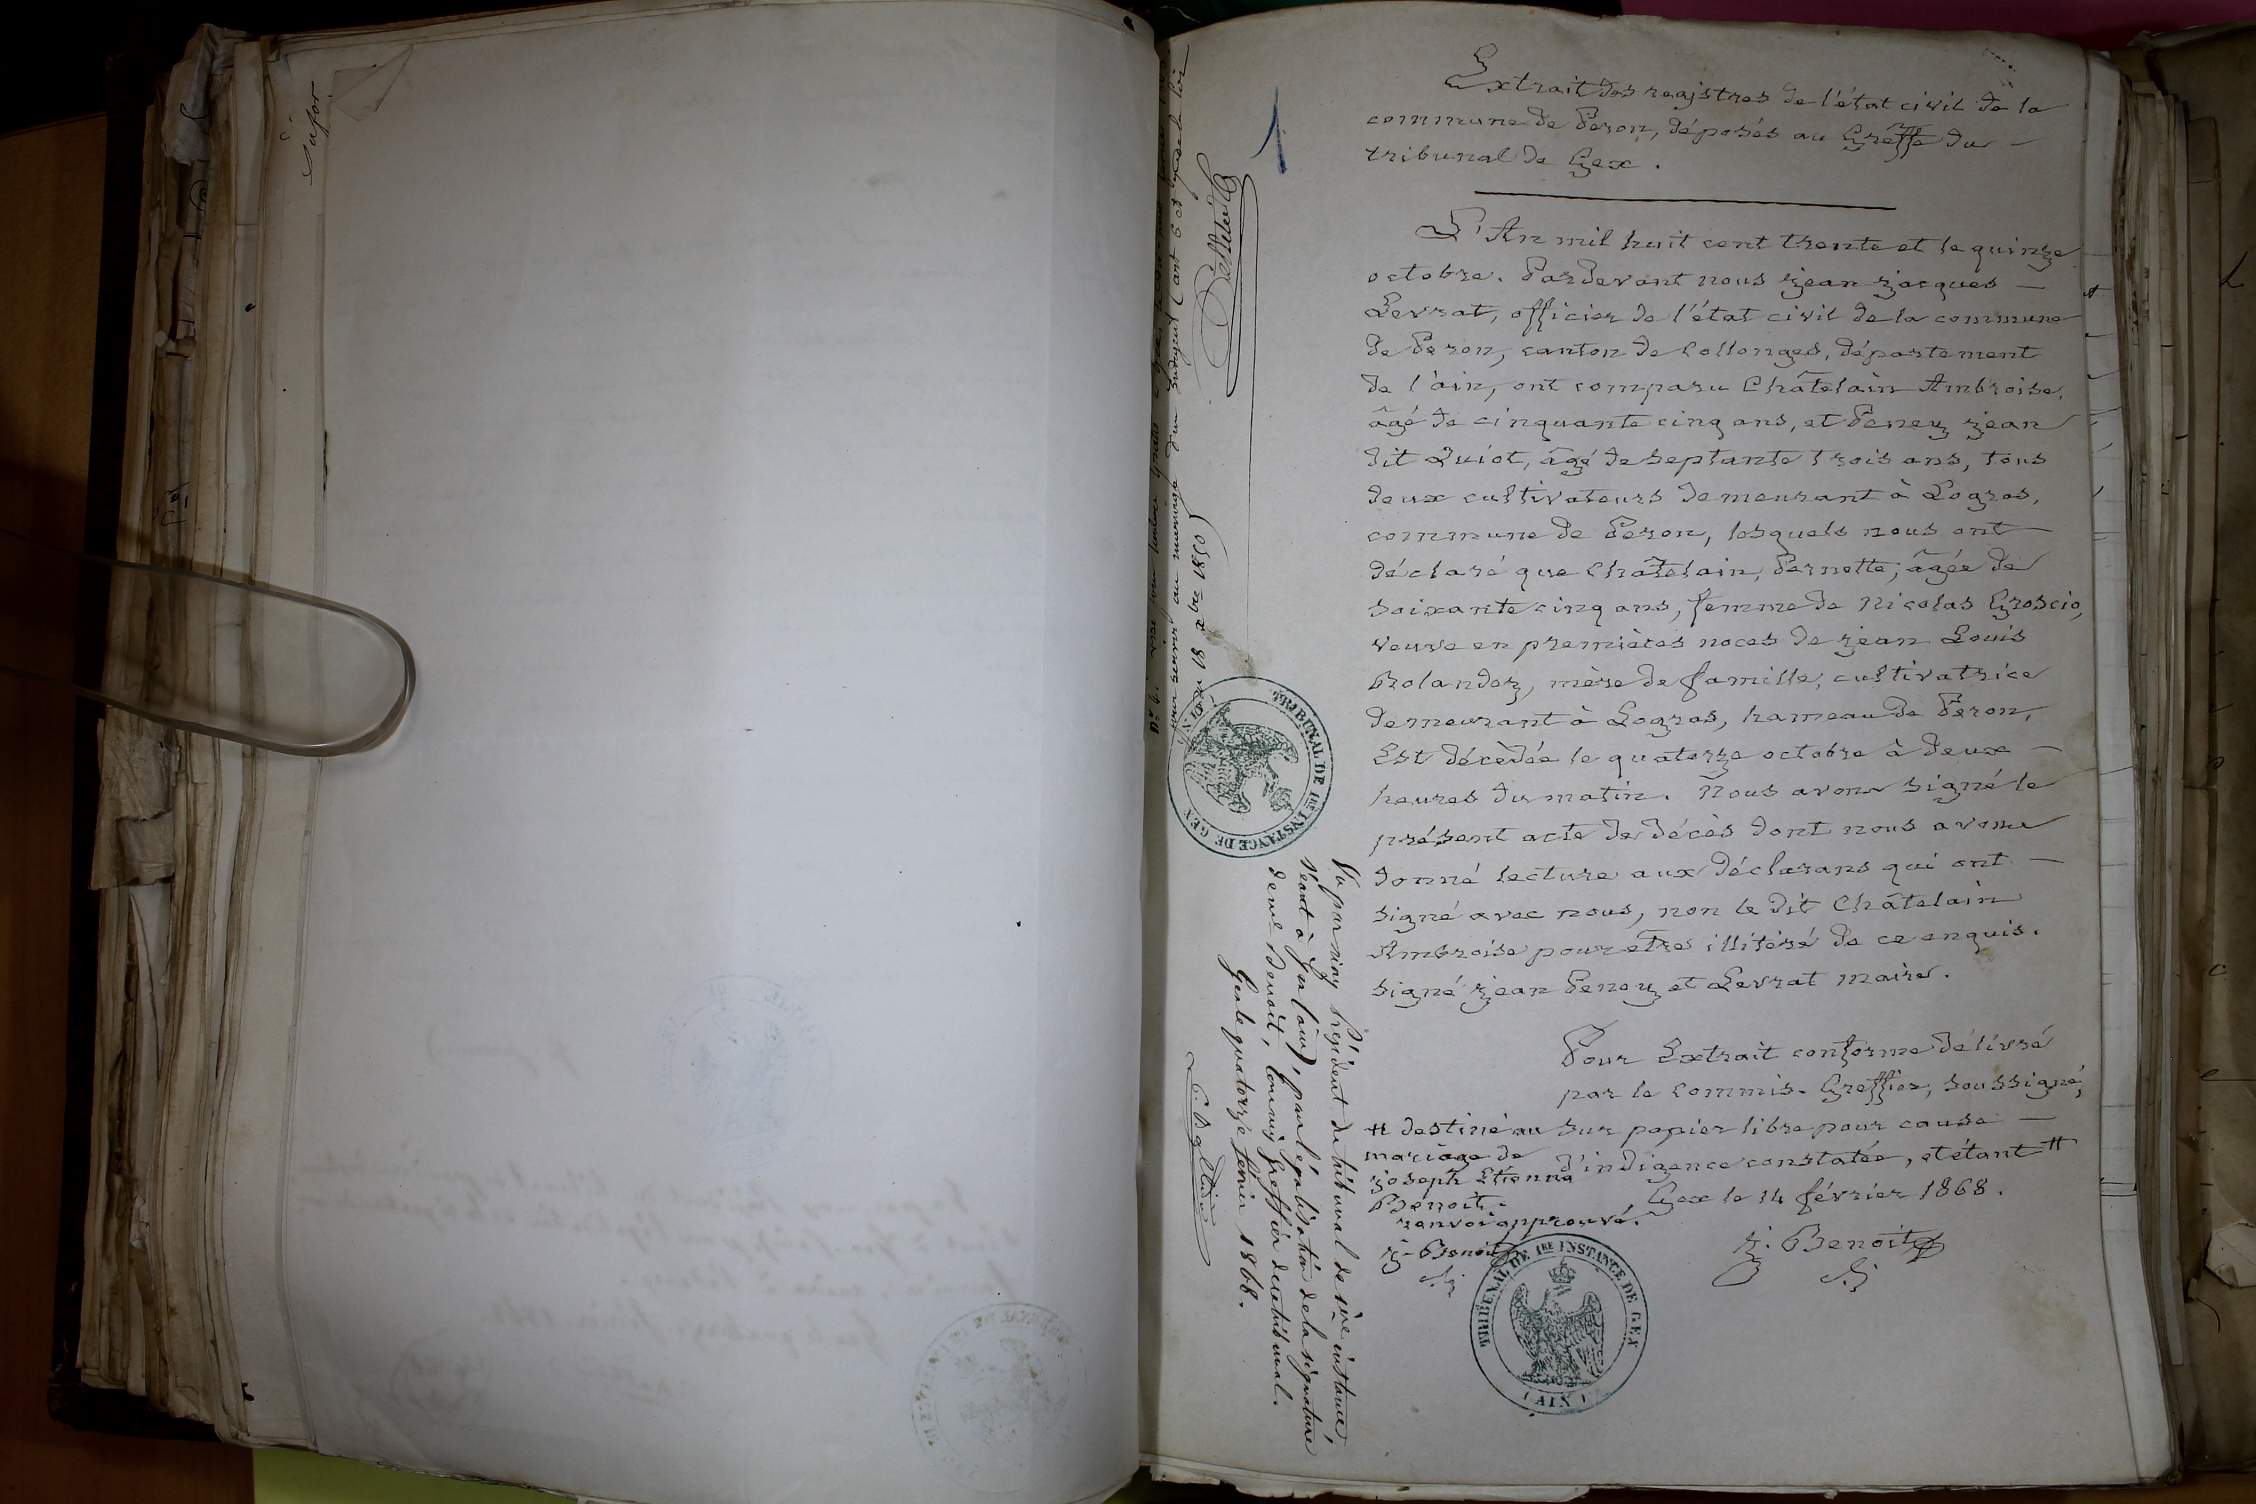 Extrait des registres de l'état civil de la
commune de Peron, déposés au Greffe du
tribunal de Gex.
L'An mil huit cent trente et le quinze
octobre. Pardevant nous jean jacques
Levrat, officier de l'état civil de la commune
de Peron, canton de Collonges, département
de l'ain, ont comparu Châtelain Ambroise,
âgé de cinquante cinq ans, et Peney jean
dit Quiot, âgé de septante trois ans, tous
deux cultivateurs demeurant à Logras,
commune de Peron, lesquels nous ont
déclaré que Châtelain, Pernette, âgée de
soixante cinq ans, femme de Nicolas Groscio,
veuve en premières noces de jean Louis
Rolandez, mère de famille, cultivatrice
demeurant à Logras, hameau de Peron,
Est décèdée le quatorze octobre à deux
heures du matin. Nous avons signé le
présent acte de décès dont nous avons
donné lecture aux déclarans qui ont
signé avec nous, non le dit Châtelain
Ambroise pour etre illitéré de ce enquis.
signé jean Peney et Levrat maire.
Pour Extrait conforme délivré
par le Commis-Greffier, soussigné,
sur papier libre pour cause
d'indigence constatée, et étant #
Gex le 14 février 1868.
j. Benoit
# destiné au
mariage de
joseph Etienne
Benoit.
renvoi approuvé.
j. Benoit
TRIBUNAL DE 1RE INSTANCE DE GEX
(AIN)
Vu par nous Président du tribunal de 1ère instance
séant à Gex (ain), pour légalisation de la signature
de me Benoit, Commis greffier de ce tribunal.
Gex le quatorze février 1868.
pour servir au mariage d'un indigent (art 6 et de la loi
du 18 xbre 1850)
TRIBUNAL DE 1RE INSTANCE DE GEX
1